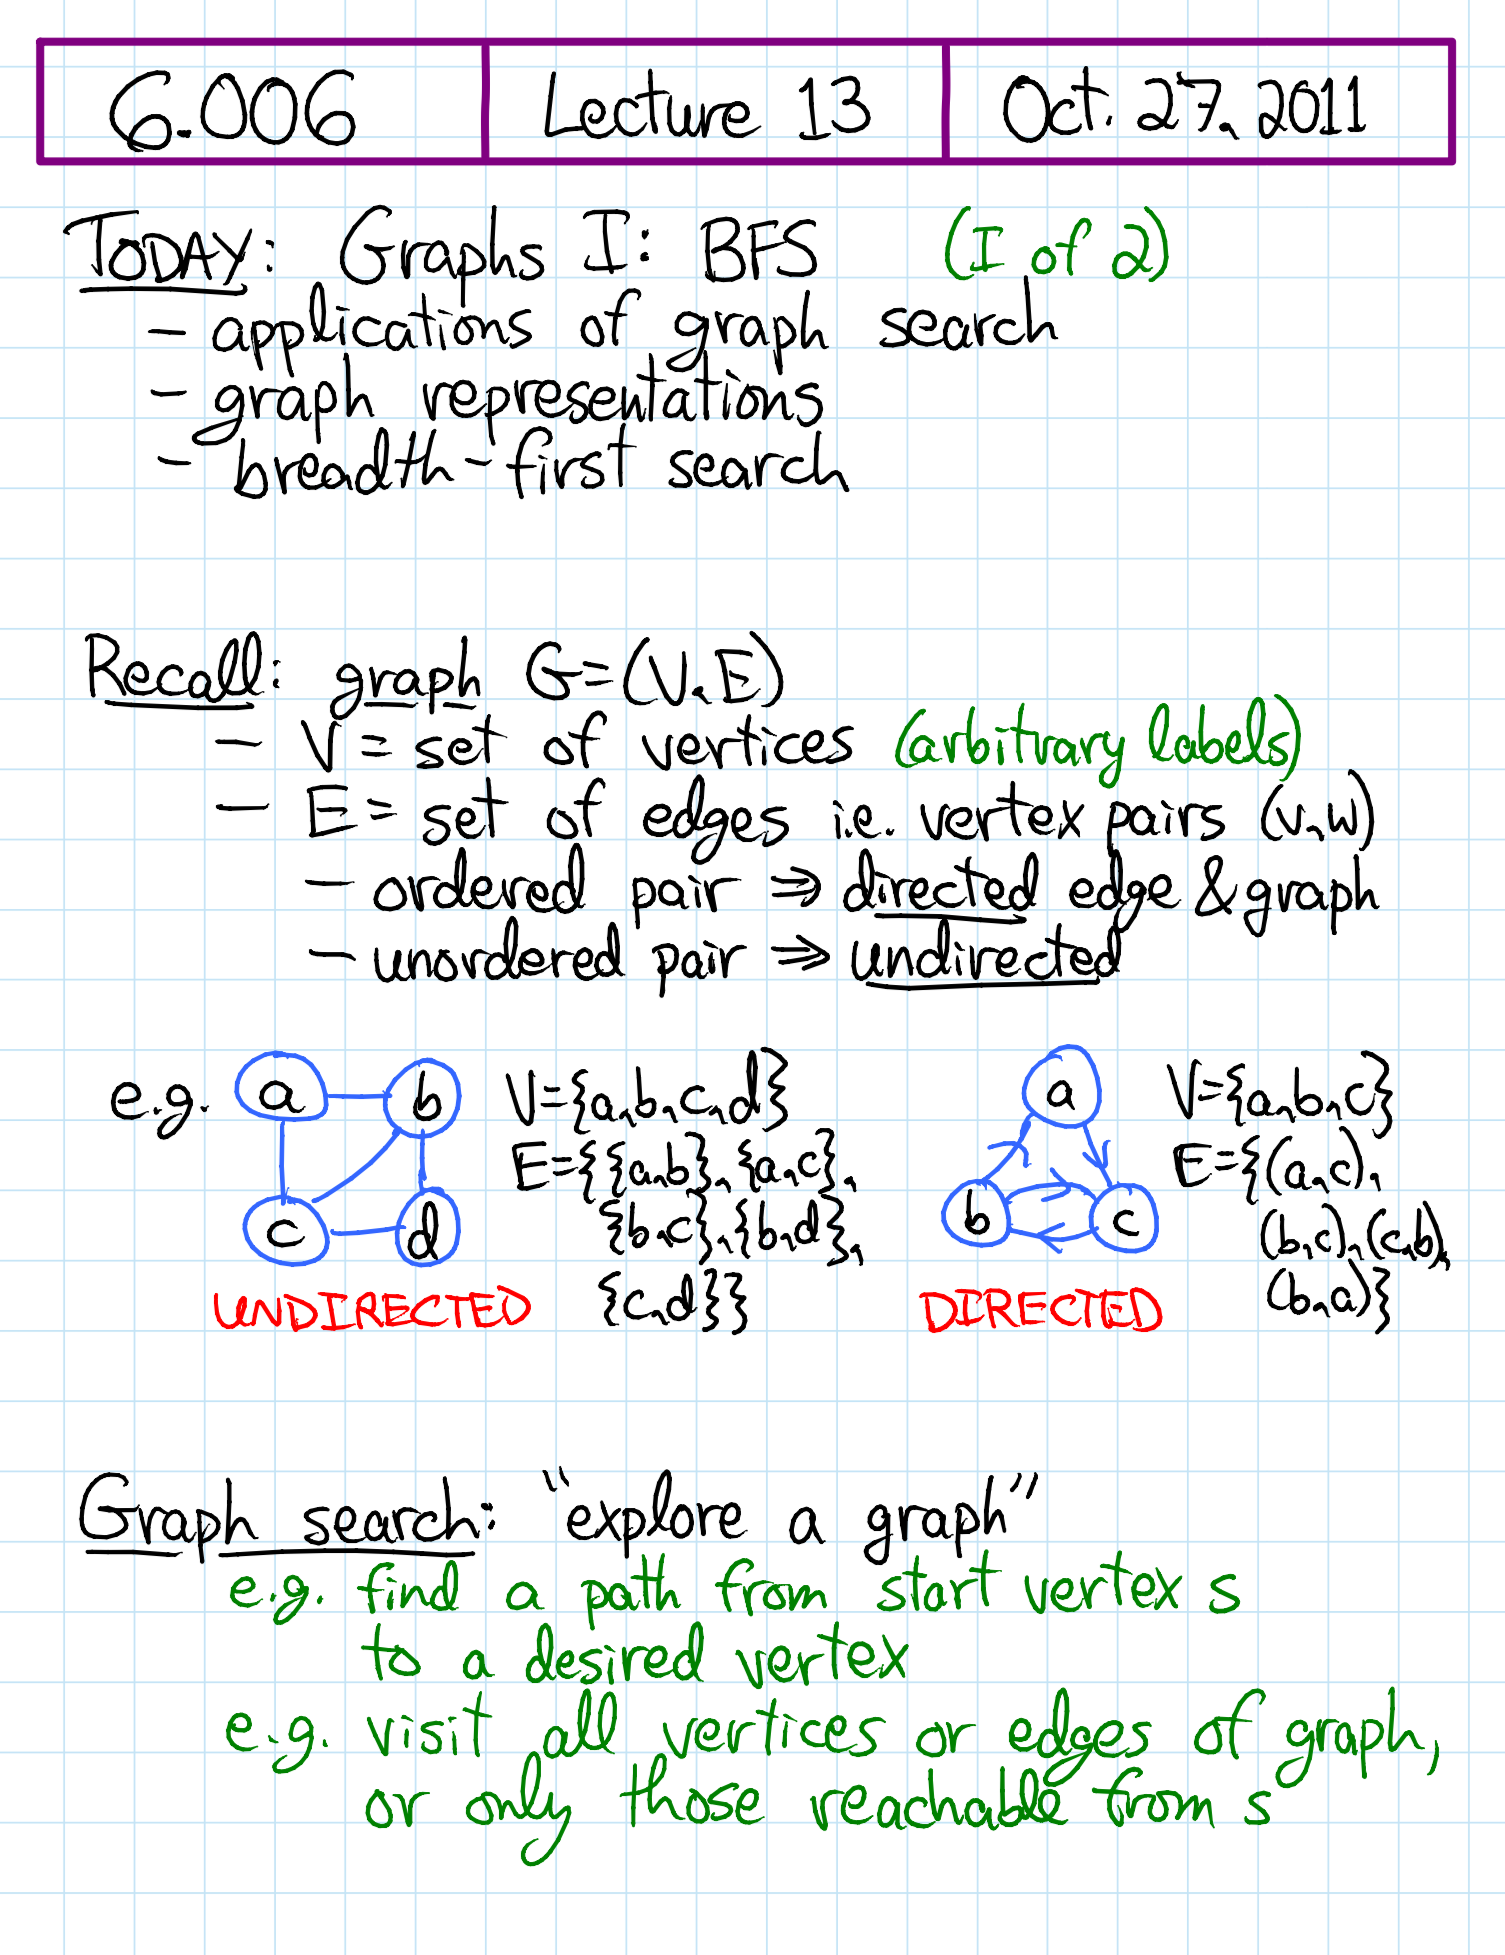 6.006 Lecture 13 Oct. 27, 2011
TODAY: Graphs I: BFS (I of 2)
- applications of graph search
- graph representations
- breadth-first search
Recall: graph G=(V,E)
- V = set of vertices (arbitrary labels)
- E = set of edges i.e. vertex pairs (v,w)
- ordered pair ⇒ directed edge & graph
- unordered pair ⇒ undirected
e.g. a b V={a,b,c,d} a V={a,b,c}
E={{a,b},{a,c}, E={(a,c),
c d {b,c},{b,d}, b c (b,c),(c,b),
UNDIRECTED {c,d}} DIRECTED (b,a)}
Graph search: "explore a graph"
e.g. find a path from start vertex s
to a desired vertex
e.g. visit all vertices or edges of graph,
or only those reachable from s